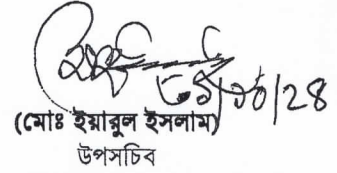 (মোঃ ইয়ারুল ইসলাম)
উপসচিব